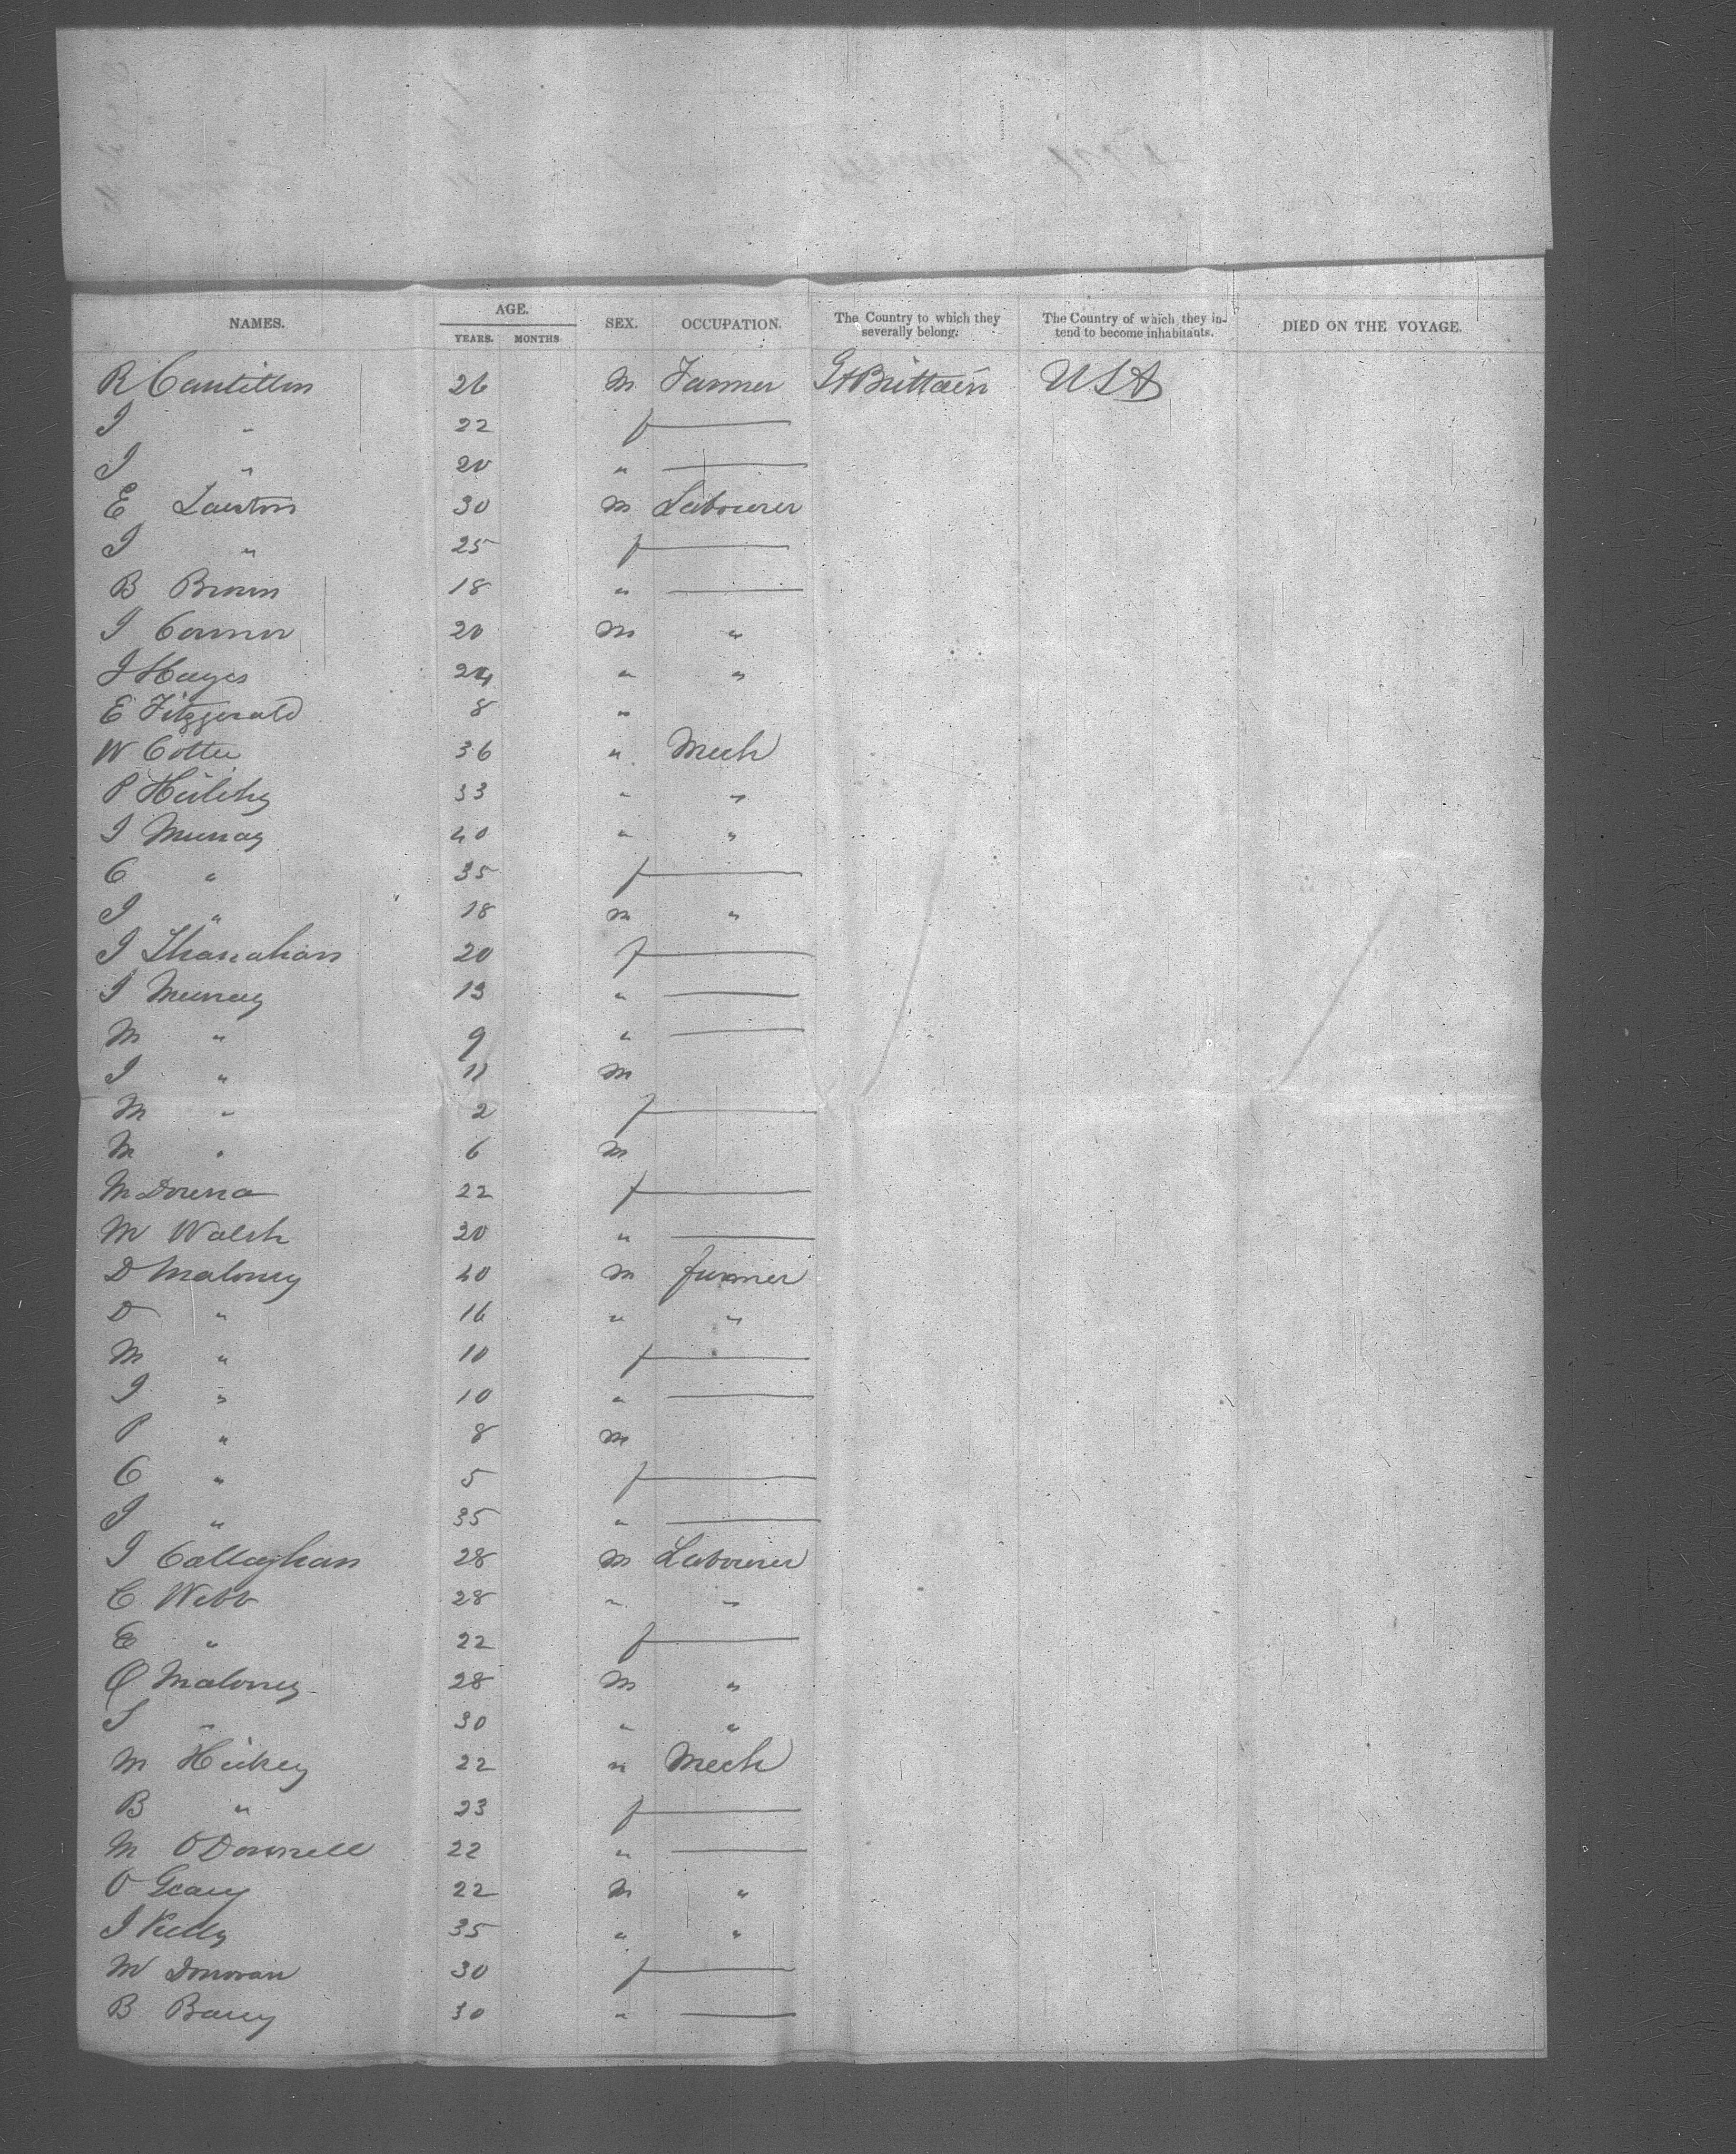 NAMES. AGE. YEARS. MONTHS SEX. OCCUPATION. The Country to which they severally belong. The Country of which they intend to become inhabitants. DIED ON THE VOYAGE.
R Cantillon 26 M Farmer Gt Brittain USA
J " 22 f —
J " 20 " —
E 30 M Labourer
J " 25 f —
B Brown 18 " —
J Connor 20 M "
J Hayes 24 " "
E Fitzgerald 8 "
W Cotter 36 " Mech
P 33 " "
J Murray 40 " "
C " 35 f —
J " 18 M "
J Shanahan 20 f —
J Murray 13 " —
M " 9 " —
J " 11 M
M " 2 f —
M " 6 M
M 22 f —
M Walsh 20 " —
D Maloney 40 M farmer
D " 16 " "
M " 10 f —
J " 10 " —
P " 8 M
C " 5 f —
J " 35 " —
J Callaghan 28 M Labourer
C Webb 28 " "
E " 22 f —
P Maloney 28 M "
S " 30 " "
M Hickey 22 " Mech
B " 23 f —
M ODonnell 22 " —
O Geary 22 M "
J Kelly 35 " "
M Donovan 30 f —
B Barry 30 " —